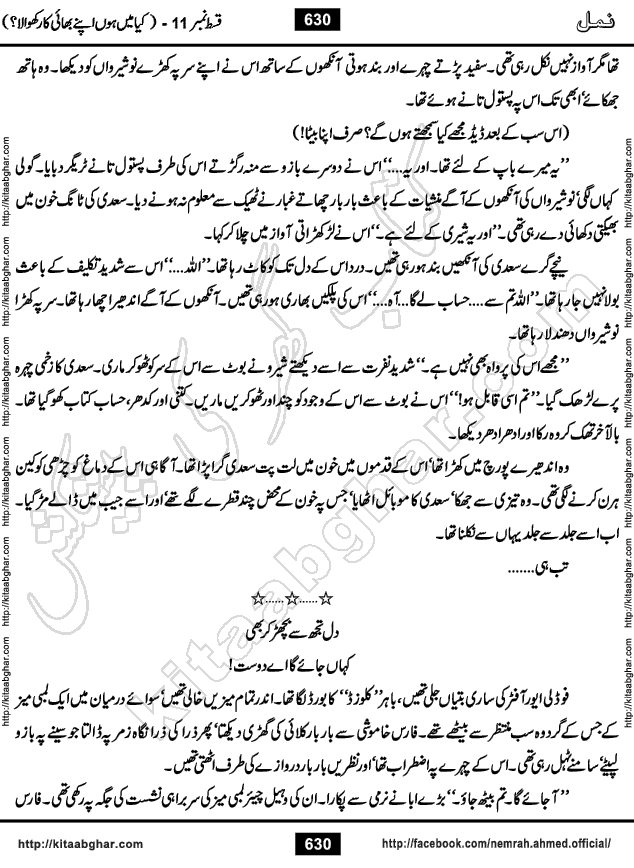 نمل
630
قسط نمبر 11 - ( کیا میں ہوں اپنے بھائی کا رکھوالا؟)
تھا مگر آواز نہیں نکل رہی تھی۔ سفید پڑتے چہرے اور بند ہوتی آنکھوں کے ساتھ اس نے اپنے سر پہ کھڑے نوشیرواں کو دیکھا۔ وہ ہاتھ
جھکائے' ابھی تک اس پہ پستول تانے ہوئے تھا۔
(اس سب کے بعد ڈیڈ مجھے کیا سمجھتے ہوں گے؟ صرف اپنا بیٹا!)
”یہ میرے باپ کے لئے تھا۔ اور یہ....“ اس نے دوسرے بازو سے منہ رگڑتے اس کی طرف پستول تانے ٹریگر دبایا۔ گولی
کہاں لگی' نوشیرواں کی آنکھوں کے آگے منشیات کے باعث بار بار چھاتے غبار نے ٹھیک سے معلوم نہ ہونے دیا۔ سعدی کی ٹانگ خون میں
بھیگتی دکھائی دے رہی تھی۔ ”اور یہ شیری کے لئے ہے۔“ اس نے لڑکھڑاتی آواز میں چلا کر کہا۔
نیچے گرے سعدی کی آنکھیں بند ہو رہی تھیں۔ درد اس کے دل تک کو کاٹ رہا تھا۔ ”اللہ....“ اس سے شدید تکلیف کے باعث
بولا نہیں جا رہا تھا۔ ”اللہ تم سے .... حساب لے گا۔ آہ....“ اس کی پلکیں بھاری ہو رہی تھیں۔ آنکھوں کے آگے اندھیرا چھا رہا تھا۔ سر پہ کھڑا
نوشیرواں دھندلا رہا تھا۔
”مجھے اس کی پرواہ بھی نہیں ہے۔“ شدید نفرت سے اسے دیکھتے شیرو نے بوٹ سے اس کے سر کو ٹھوکر ماری۔ سعدی کا زخمی چہرہ
پرے لڑھک گیا۔ ”تم اسی قابل ہو!“ اس نے بوٹ سے اس کے وجود کو چند اور ٹھوکریں ماریں۔ کتنی اور کدھر، حساب کتاب کھو گیا تھا۔
بالآخر تھک کر وہ رکا اور ادھر ادھر دیکھا۔
وہ اندھیرے پورچ میں کھڑا تھا' اس کے قدموں میں خون میں لت پت سعدی گرا پڑا تھا۔ آگاہی اس کے دماغ کو چڑھی کوکین
ہرن کرنے لگی تھی۔ وہ تیزی سے جھکا' سعدی کا موبائل اٹھایا' جس پہ خون کے محض چند قطرے لگے تھے' اور اسے جیب میں ڈالے مڑ گیا۔
اب اسے جلد سے جلد یہاں سے نکلنا تھا۔
تب ہی.......
☆......☆......☆
دل تجھ سے بچھڑ کر بھی
کہاں جائے گا اے دوست!
فوڈلی ایور آفٹر کی ساری بتیاں جلی تھیں، باہر ”کلوزڈ“ کا بورڈ لگا تھا۔ اندر تمام میزیں خالی تھیں' سوائے درمیان میں ایک لمبی میز
کے جس کے گرد وہ سب منتظر سے بیٹھے تھے۔ فارس خاموشی سے بار بار کلائی کی گھڑی دیکھتا' پھر ذرا کی ذرا نگاہ زمر پہ ڈالتا جو سینے پہ بازو
لپیٹے' سامنے ٹہل رہی تھی۔ اس کے چہرے پہ اضطراب تھا' اور نظریں بار بار دروازے کی طرف اٹھتی تھیں۔
”آ جائے گا۔ تم بیٹھ جاؤ۔“ بڑے ابا نے نرمی سے پکارا۔ ان کی وہیل چیئر لمبی میز کی سربراہی نشست کی جگہ پہ رکھی تھی۔ فارس
http://kitaabghar.com
630
http://facebook.com/nemrah.ahmed.official/
http://kitaabghar.com http://kitaabghar.com http://kitaabghar.com http://kitaabghar.com http://kitaabghar.com http://kitaabghar.com
http://kitaabghar.com http://kitaabghar.com http://kitaabghar.com http://kitaabghar.com http://kitaabghar.com http://kitaabghar.com
کتاب گھر کی پیشکش
kitaabghar.com